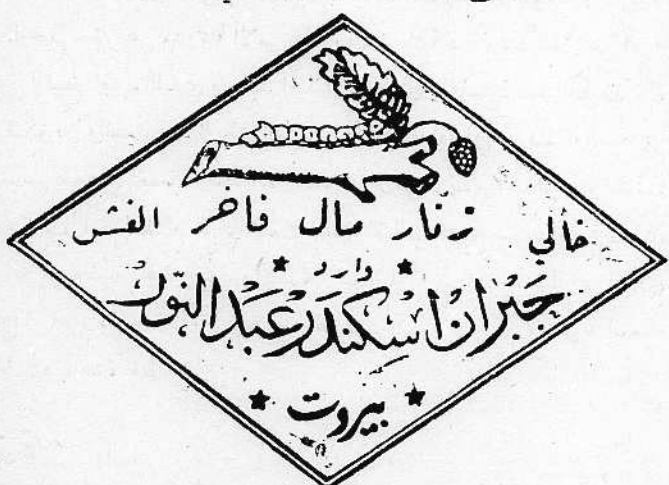 خالي زنار مال فاخر الغش
وارد
جبران اسكندر عبد النور
بيروت